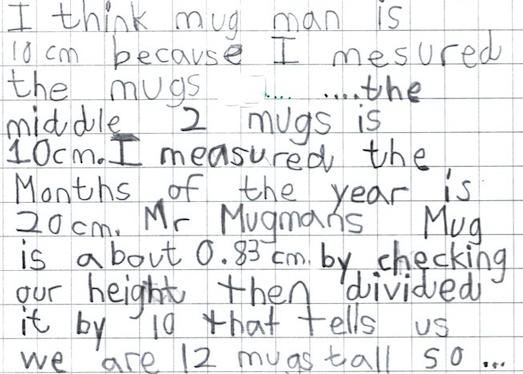 I think mug man is
10 cm because I mesured
the mugs ... ....the
middle 2 mugs is
10cm. I measured the
Months of the year is
20cm. Mr Mugmans Mug
is about 0.83 cm. by checking
our height then divided
it by 10 that tells us
we are 12 mugs tall so ...